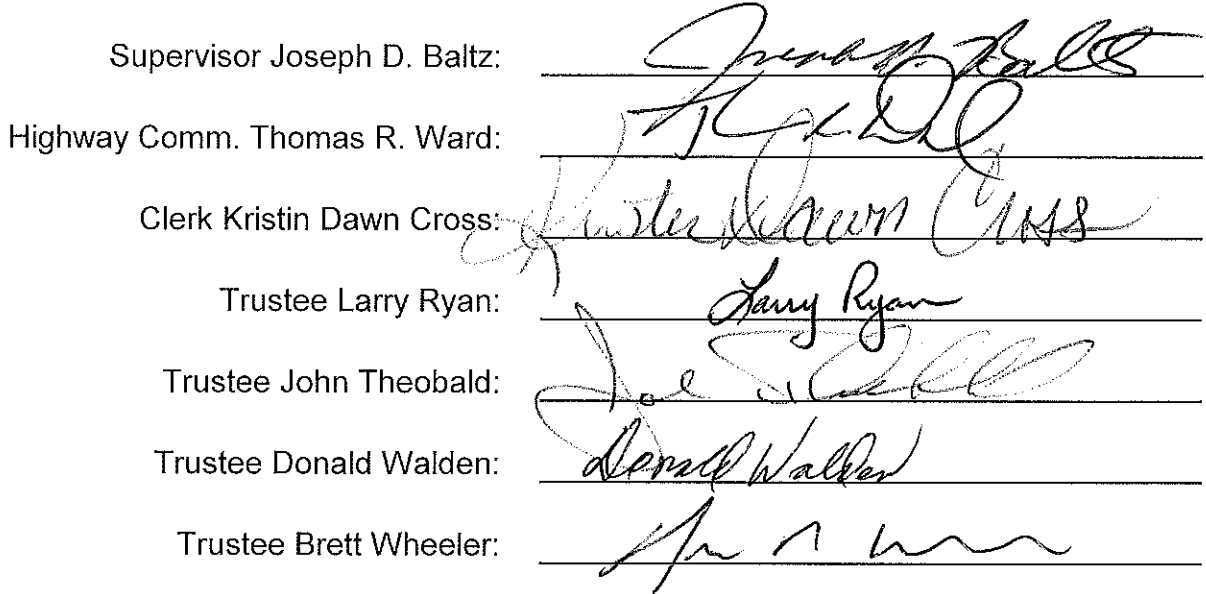 Supervisor Joseph D. Baltz: Joseph D. Baltz
Highway Comm. Thomas R. Ward:
Clerk Kristin Dawn Cross: Kristin Dawn Cross
Trustee Larry Ryan: Larry Ryan
Trustee John Theobald:
Trustee Donald Walden: Donald Walden
Trustee Brett Wheeler: